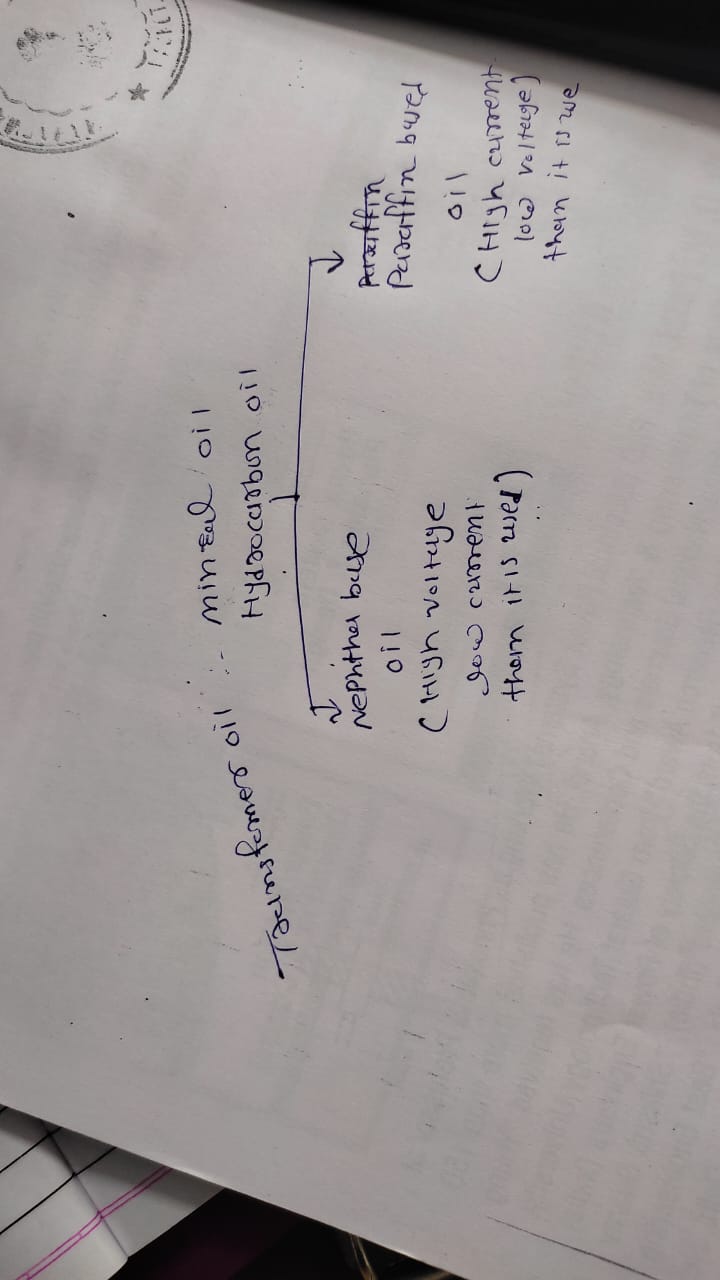 Transformer oil :- minral oil
Hydrocarbon oil
Nephthal base
oil
(High voltage
low current
then it is used)
Paraffin
Paraffin based
oil
(High current
low voltage)
then it is use